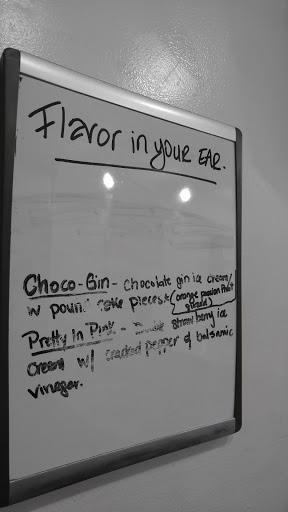 Flavor in your EAR.
Choco-Gin - chocolate gin ice cream/
w pound cake pieces + (orange passion fruit
Pretty In Pink - strawberry ice
cream w/ cracked pepper & balsamic
vinegar.